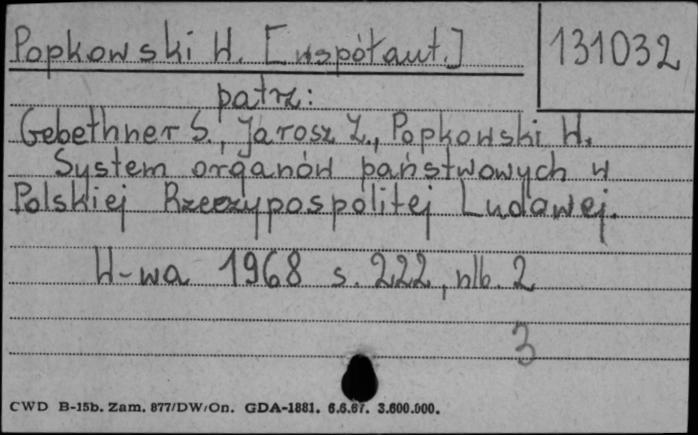 Popkowski W. [współaut.]
131032
patrz:
Gebethner S., Jarosz Z., Popkowski W.
System organów państwowych w
Polskiej Rzeczypospolitej Ludowej.
W-wa 1968 s. 222, nlb. 2
3
CWD B-15b. Zam. 877/DW/On. GDA-1881. 6.6.67. 3.600.000.